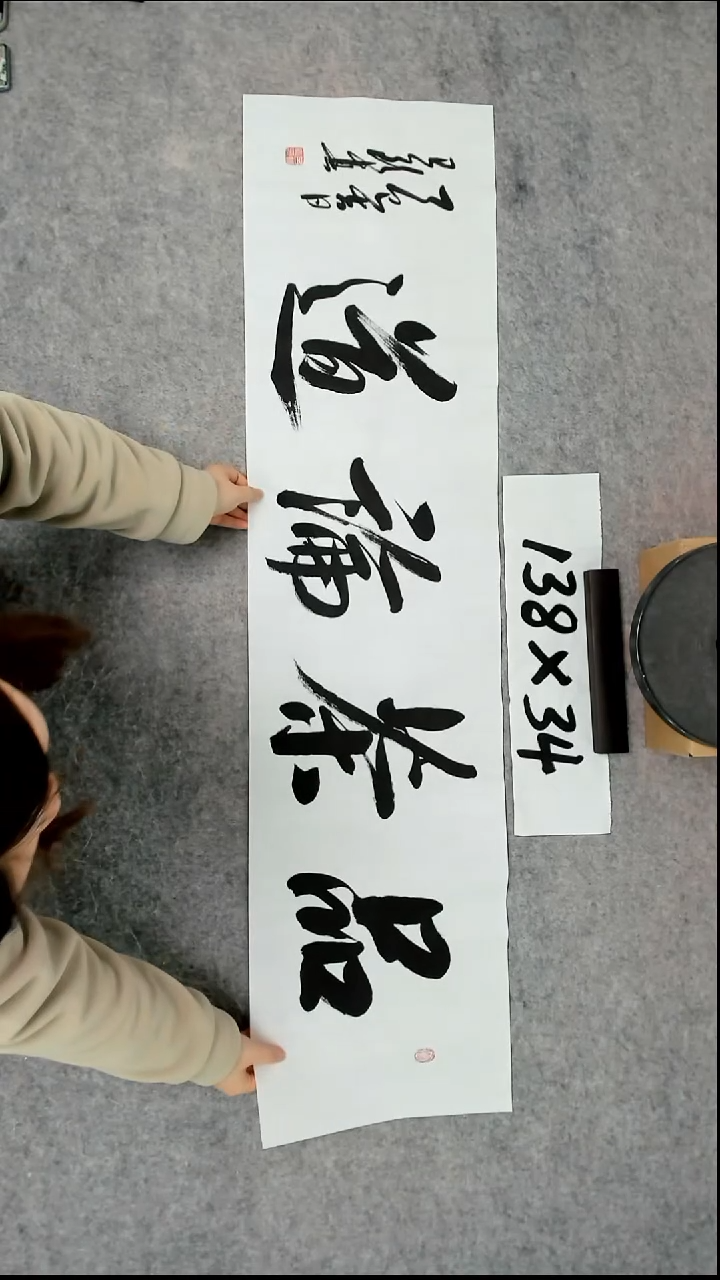 品茶論道
138×34